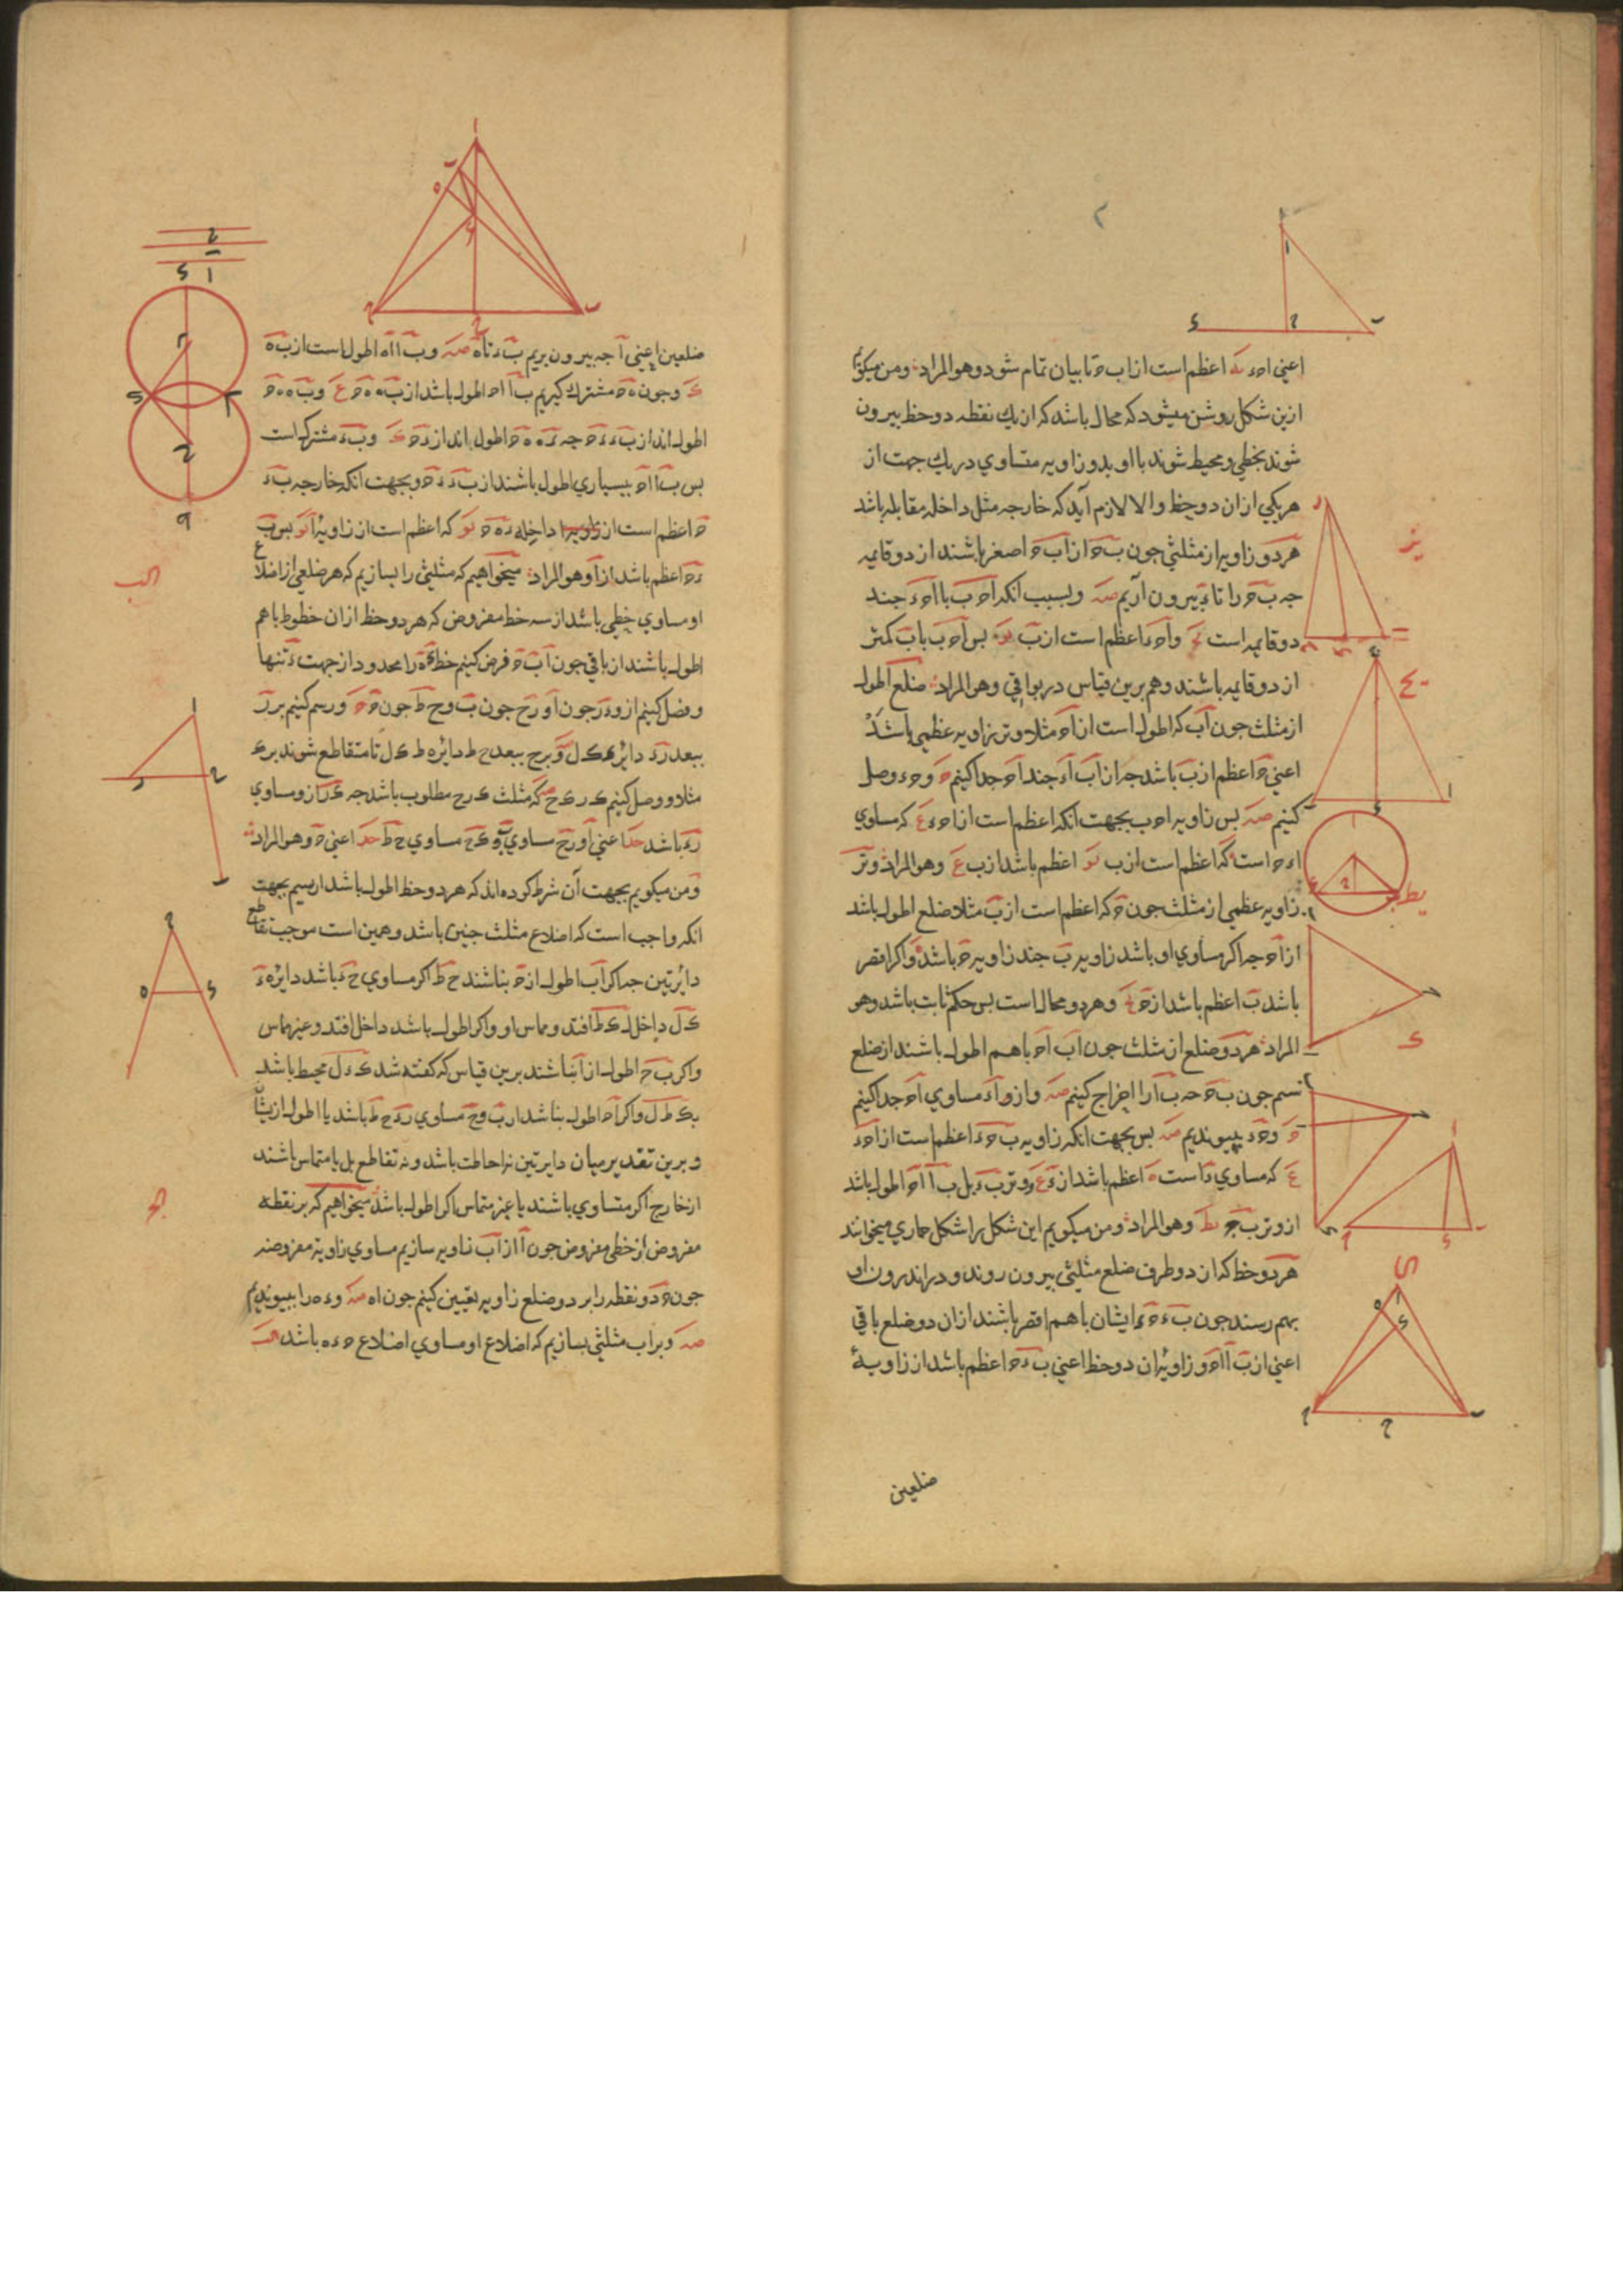 اعنی احء یه اعظم است از اب ح تا بیان تمام شود و هو المراد و من میکویم
ازین شکل روشن میشود که محال باشد که از یك نقطه دو خط بیرون
شوند بخطی و محیط شوند با او بدو زاویه متساوی در یك جهت از
هر یکی ازان دو خط و الا لازم آید که خارجه مثل داخله مقابله باشد
هر دو زاویه از مثلثی چون ب ح از اب ح اصغر باشند از دو قایمه
چه ب ح را تا ء بیرون آریم صه و بسبب انکه اح ب با احء چند
دو قایمه است و احء اعظم است از ب یو بس اح ب با ب کمتر
از دو قایمه باشند و هم برین قیاس در بواقی و هو المراد ضلع اطول
از مثلث جون اب که اطول است از اح مثلا وتر زاویه عظمی باشد
اعنی ح اعظم از ب باشد چه از اب اء چند اح جدا کنیم ح و حء وصل
کنیم صه بس زاویه اح ب بجهت انکه اعظم است از احء ع که مساوی
اءح است که اعظم است از ب یو اعظم باشد از ب ع و هو المراد وتر
زاویه عظمی از مثلث جون ح که اعظم است از ب مثلا ضلع اطول باشد
از اح چه اکر مساوی او باشد زاویه ب چند زاویه ح باشد و اکر اقصر
باشد ب اعظم باشد از ح و هر دو محال است بس حکم ثابت باشد و هو
المراد هر دو ضلع از مثلث جون اب اح با هم اطول باشند از ضلع
سم جون ب ح چه ب ا را اخراج کنیم صه و ازو اء مساوی اح جدا کنیم
ح و حء بپیوندیم صه بس بجهت انکه زاویه ب حء اعظم است از احء
ع که مساوی ء است ه اعظم باشد از ء ع و وتر ب ء بل ب ا اح اطول باشد
از وتر ب ح یط و هو المراد و من میکویم این شکل را شکل حماری میخوانند
هر دو خط که از دو طرف ضلع مثلثی بیرون روند و در اندرون او
بهم رسند جون ب ء ح ء ایشان با هم اقصر باشند ازان دو ضلع باقی
اعنی از ب ا اح و زاویه ان دو خط اعنی ب ء ح اعظم باشد از زاویهٔ
ضلعین
ضلعین اعنی ا چه بیرون بریم ب ء تا ه صه و ب ا اه اطول است از ب ه
ک و جون ه ح مشترك کیریم ب ا اح اطول باشد از ب ه ه ح ع و ب ه ه ح
اطول اند از ب ء ء ح چه ء ه ه ح اطول اند از ء ح ک و ب ء مشترك است
بس ب ا اح ببسیاری اطول باشند از ب ء ء ح و بجهت انکه خارجه ب ء
ح اعظم است از داخله ء ه ح یو که اعظم است از زاویهٔ ا یو بس ب
ء ح اعظم باشد از ا و هو المراد میخواهیم که مثلثی را بسازیم که هر ضلعی از اضلاع
او مساوی خطی باشد از سه خط مفروض که هر دو خط ازان خطوط با هم
اطول باشند از باقی جون ا ب ح فرض کنیم خط ء ه را محدود از جهت ء تنها
و فصل کنیم ازو ء ر جون ا و ر ح جون ب و ح ط جون ح ح و رسم کنیم بر ر
ببعد ر ء دایره ء ك ل و بر ح ببعد ح ط دایره ط ك ل تا متقاطع شوند بر ك
مثلا و وصل کنیم ك ر ك ح صه که مثلث ك ر ح مطلوب باشد چه ك ر ازو مساوی
ر ء باشد حد اعنی ا و ر ح مساوی ب و ك ح مساوی ح ط حد اعنی ح و هو المراد
و من میکویم بجهت آن شرط کرده اند که هر دو خط اطول باشد از سیم بجهت
انکه واجب است که اضلاع مثلث چنین باشد و همین است موجب تقاطع
دایرتین چه اکر اب اطول از ح نباشند ح ط اکر مساوی ح ء باشد دایره ء
ك ل داخل ك ط افتد و مماس او و اکر اطول باشد داخل افتد و غیر مماس
و اکر ب ح اطول از ا نباشند برین قیاس که کفته شد ك ء ل محیط باشد
بك ط ل و اکر اح اطول نباشد از ب و ح مساوی ر ء ح ط باشد یا اطول ازیشان
و برین تقدیر میان دایرتین نه احاطت باشد و نه تقاطع بل یا متماس باشند
از خارج اکر متساوی باشند یا غیر متماس اکر اطول باشد میخواهیم که بر نقطه
مفروض از خطی مفروض جون ا از اب زاویه سازیم مساوی زاویه مفروضه
جون ح دو نقطه را بر دو ضلع زاویه تعیین کنیم جون ء ه صه و ء ه را بپیوندیم
صه و بر اب مثلثی بسازیم که اضلاع او مساوی اضلاع ح ء ه باشد